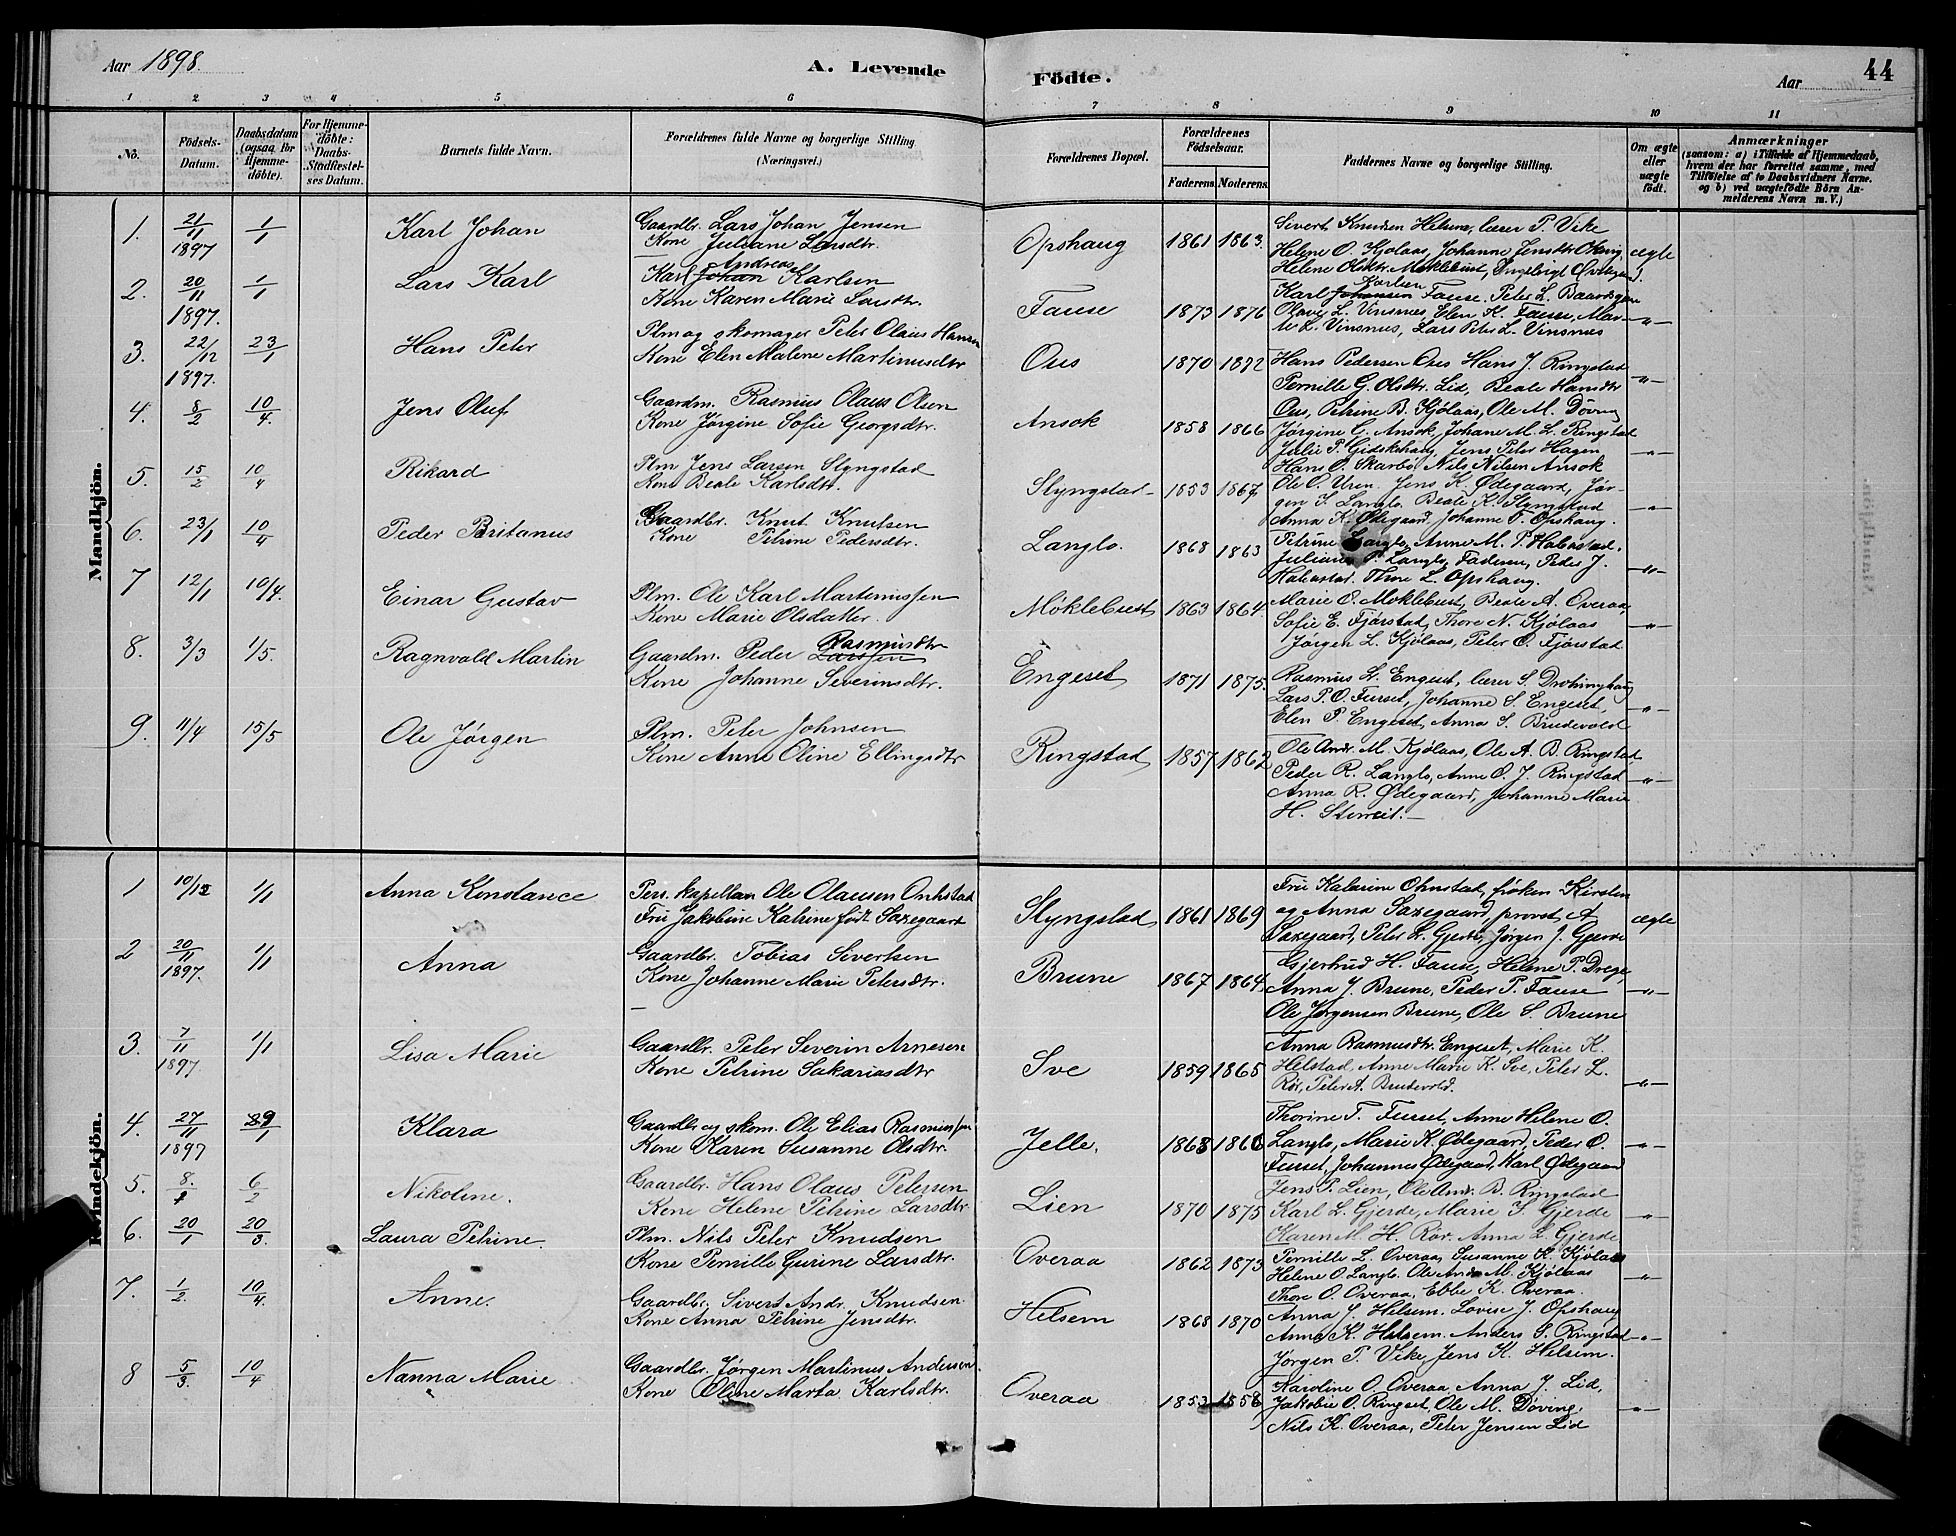 Aar 1898.
A. Levende
Fødte.
Aar
44
1 2 3 4 5 6 7 8 9 10 11
No.
Fødsels-Datum.
Daabsdatum (ogsaa for Hjemme-døbte).
For Hjemme-døbte: Daabs-Stadfæstel-ses Datum.
Barnets fulde Navn.
Forældrenes fulde Navne og borgerlige Stilling (Næringsvei.)
Forældrenes Bopæl.
Forældrenes Fødselsaar.
Faderens. Moderens.
Faddernes Navne og borgerlige Stilling.
Om ægte eller uægte født.
Anmærkninger
(saasom: a) i Tilfælde af Hjemmedaab, hvem der har forrettet samme, med Tilføielse af to Daabsvidners Navne. og b) ved uægtefødte Børn An-melderens Navn m. V.)
Mandkjön.
1. 21/11 1897 1/1 Karl Johan
Gaardbr. Lars Johan Jensen
Kone Juliane Larsdtr.
Opshaug 1861 1863.
Sivert Knudsen Helsem, lærer P. Vike
Helene O. Kjolaas, Johanne Jensdtr
Helene Olsdtr. Møklebust, Ingeborg
ægte
2. 20/11 1897. 1/1 Lars Karl
Karl Johan Andreas Karlsen
Kone Karen Marie Larsdtr.
Fause 1873 1876
Karl Johansen Karlsen Fause, Peter L.
Olave L. Vinsnes, Elen K. Fause, Mar-
te L. Vinsnus, Lars Peter L. Vinsnus
-"-
3. 22/12 1897. 23/1 Hans Peter
Plm og skomager Peter Olaus Hansen
Kone Elen Malene Martinusdtr
Ous 1870 1872
Hans Pedersen Ous Hans J. Ringstad
Pernille G. Olsdtr. Lid, Beate Hansdtr
Ous, Petrine B. Kjølaas, Ole M. Döving
-"-
4. 8/2 10/4. Jens Oluf
Gaardm. Rasmus Olaus Olsen
Kone Jørgine Sofie Georgsdtr.
Ansok 1858 1866
Jørgine G. Ansok, Johane M. L. Ringstad
Julie P. Gidskehaug, Jens Peter Hagen
Hans O. Skarbø, Nils Nilsen Ansok
-"-
5. 15/2 10/4 Rikard
Plm Jens Larsen Slyngstad
Kone Beate Karlsdtr.
Slyngstad 1853 1867
Ole O. Uren. Jens K. Ødegaard, Jør-
gen I. Langlo. Beate K. Slyngstad
Anna K. Ødegaard, Johanne T. Opshaug.
-"-
6. 23/1 10/4 Peder Britanus
Gaardbr. Knut Knutsen
Kone Petrine Pedersdtr.
Langlo. 1868 1863
Petrine Langlo, Anne M. P. Habostad.
Juliane P. Langlo, Faderen, Peder J.
Habostad. Thore L. Opshaug.
-"-
7 12/1 10/4. Einar Gustav
Plm. Ole Karl Martinussen
Kone Marie Olsdatter.
Møklebust 1863 1864.
Marie O. Moklebust, Beate A. Overaa,
Sofie E. Fjørstad, Thore N. Kjölaas
Jørgen L. Kjölaas, Peter O. Fjørstad
-"-
8. 3/3 1/5. Ragnvald Martin
Gaardm. Peder Larssen Rasmusdtr
Kone Johanne Severinsdtr.
Engeset 1871 1875.
Rasmus L. Engeset, lærer S. Drotninghaug
Lars P. O. Furset, Johanne S. Engeset,
Elen P. Engeset, Anna S. Brudevold
-"-
9. 11/4 15/5 Ole Jørgen
Plm. Peter Johnsen
Kone Anne Oline Ellingsdtr
Ringstad 1857 1862
Ole Andr. M. Kjölaas, Ole A. B. Ringstad
Peder R. Langlo, Anne O. J. Ringstad
Anna R. Ødegaard, Johanne Marie
H. -
-"-
Kvindekjön.
1 10/12 1/1 Anna Konstance
Pers. kapellan Ole Olausen Onhstad
Fru Jakobine Katrine født Saxegaard
Slyngstad 1861 1869
Fru Katarine Ohnstad, frøken Kirsten
og Anna Saxegaard, provst A
Saxegaard, Peter L. Gjerde, Jørgen J. Gjerde
ægte
2 20/11 1897. 1/1 Anna
Gaardbr. Tobias Sivertsen
Kone Johanne Marie Petersdtr.
Brune 1867 1864.
Gjertrud H. Fause, Helene P. Drege,
Anna J. Brune, Peder P. Fause
Ole Jørgensen Brune, Ole S. Brune
-"-
3. 7/11 1897. 1/1 Lisa Marie
Gaardbr. Peter Severin Arnesen
Kone Petrine Sakariasdtr
Sve 1859 1865
Anna Rasmusdtr. Engeset, Marie K.
Helstad, Anne Marie K. Sve, Peter L.
Rör, Peter A. Brudevold.
-"-
4. 27/11 1897 29/1 Klara
Gaardbr og skom. Ole Elias Rasmussen
Kone Karen Susanne Olsdtr.
Jelle. 1868 1860
Thorine T. Furset, Anne Helene O.
Langlo, Marie K. Ødegaard, Peder O.
Furset, Johannes Ødegaard, Karl Ødegaard
-"-
5. 8/1 6/2 Nikoline.
Gaardbr. Hans Olaus Petersen
Kone Helene Petrine Larsdtr
Lien 1870 1875
Jens P. Lien, Ole Andr. B. Ringstad
Karl L. Gjerde, Marie I. Gjerde
Karen M. H. Rör. Anna L. Gjerde
-"-
6. 20/1 20/3. Laura Petrine.
Plm. Nils Peter Knudsen
Kone Pernille Gurine Larsdtr.
Overaa 1862 1873
Pernille L. Overaa, Susanne K. Kjölaas
Helene O. Langlo. Ole Andr M. Kjölaas
Thore O. Overaa, Ebbe K. Overaa.
-"-
7. 1/2. 10/4. Anne.
Gaardbr. Sivert Andr. Knudsen.
Kone Anna Petrine Jensdtr.
Helsem 1868 1870
Anna J. Helsem. Lovise J. Opshaug
Anna K. Helsem. Anders G. Ringstad
Jørgen P. Vike, Jens K. Helsem.
-"-
8 5/3. 10/4 Nanna Marie
Gaardbr. Jørgen Martinus Andersen.
Kone Oline Marta Karlsdtr.
Overaa 1853 1858
Karoline O. Overaa, Anna J. Lid,
Jakobie O. Ringset, Ole M. Döving,
Nils K. Overaa, Peter Jensen Lid
-"-